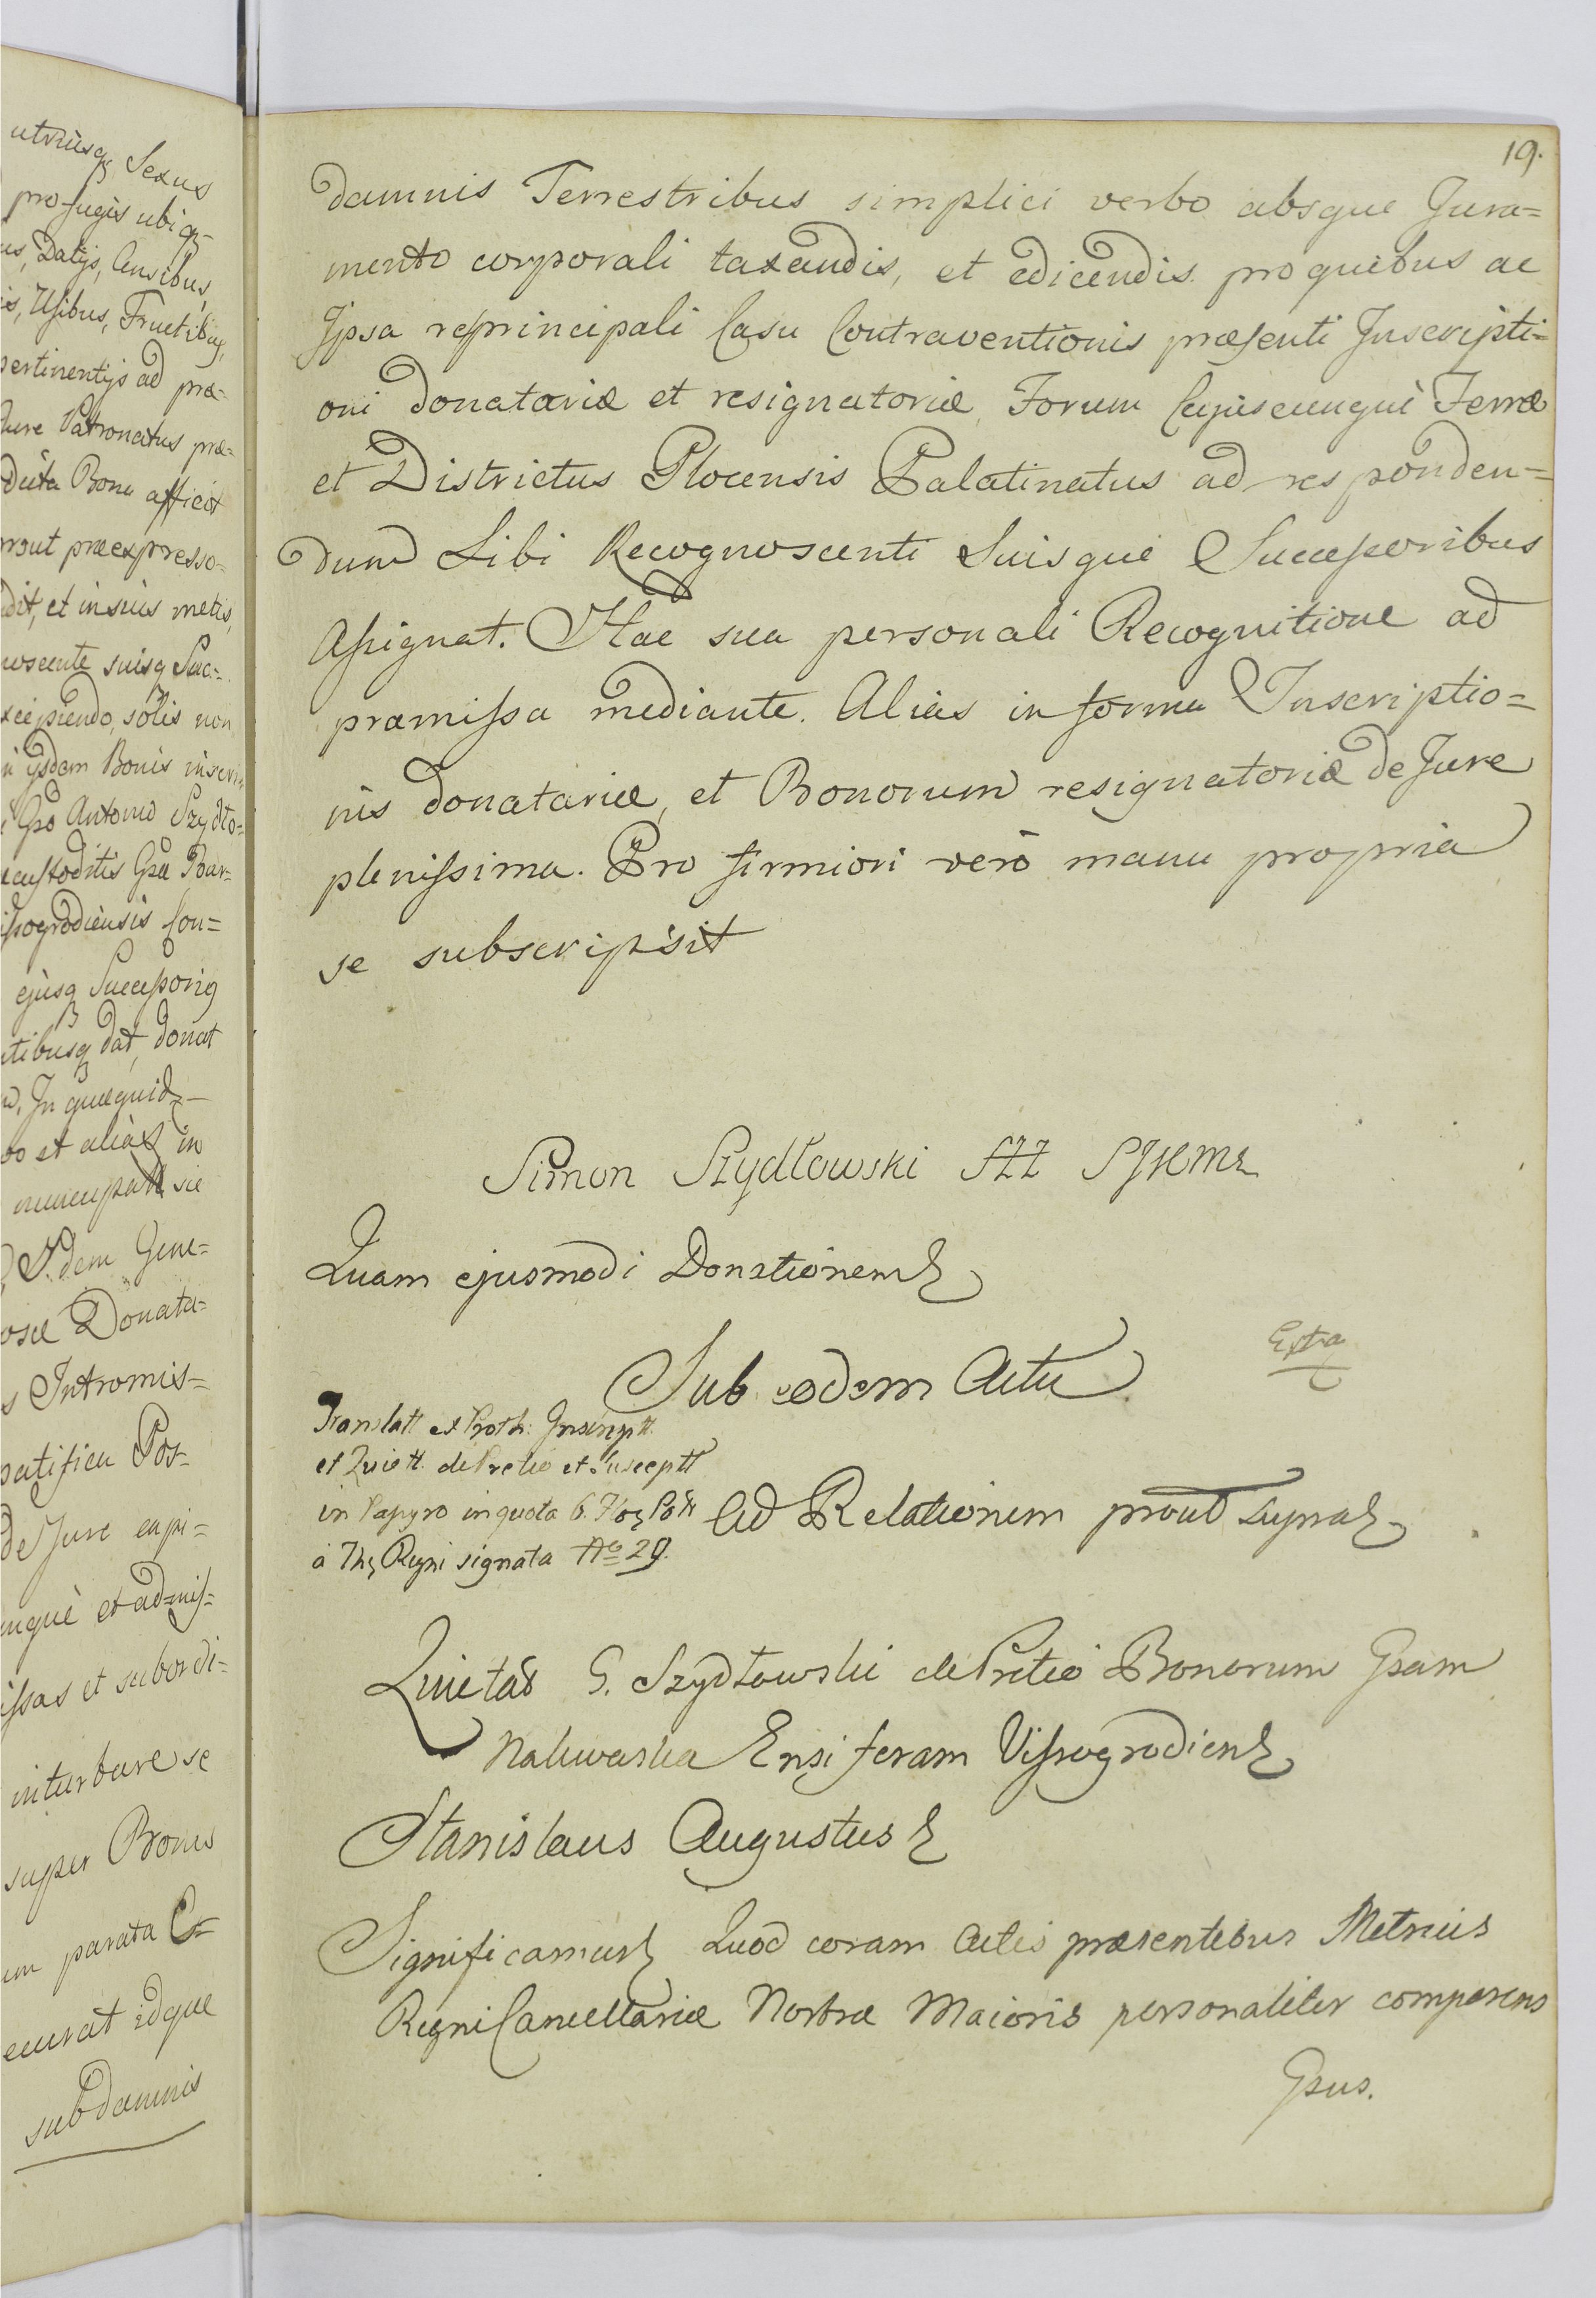 utriusq Sexus
profugis ubiq-
us, Datijs, Censibus,
is, Usibus, Fructibus,
pertinentijs ad præ-
Jure Patronatus præ-
dicta Bona afficit
prout præexpresso-
dit, et in suis metis,
noscente suisq Suc-
xcipiendo, solis non
ijsdem Bonis inscri-
Gso Antonio Szydło-
custoditis Gsæ Bar-
issogrodiensis Con=
ejusq Successorig
tibusq dat, donat
In quæquid-
oo et alias in
nuncupatt sic
Idem Gene=
osæ Donata-
s Intromis=
ratifica Pos-
de Jure capi=
unquè et admis=
issas et subordi=
inturbare se
super Bonis
um parata C=
ecurat idque
sub damnis
19.
damnis Terrestribus simplici verbo absque Jura=
mento corporali taxandis, et edicendis. pro quibus ac
Ipsa re principali Casu Contraventionis præsenti Inscripti=
oni donatoriæ et resignatoriæ, Forum Cujuscunquè Terræ
et Districtus Plocensis Palatinatus ad responden=
dum Sibi Recognoscenti Suisquè Successoribus
Assignat. Hac sua personali Recognitione ad
præmissa mediante. Alias in forma Inscriptio=
nis donatoriæ, et Bonorum resignatoriæ de Jure
plenissima. Pro firmiori verò manu propria
se subscripsit
Simon Szydłowski
Quam ejusmodi Donationem
Sub eodem Actu
Extra
Translatt ex Proth: Inscriptt
et Quiett. de Pretio et Susceptt
in Papyro in quota 6.
à Regni signata No 29.
Ad Relationem prout supra
Quietat G. Szydłowski de Pretio Bonorum Gsam
Nakwaska Ensiferam Vissogrodien
Stanislaus Augustus
Significamus Quod coram Actis præsentibus Metrices
Regni Cancellariæ Nostræ Maioris personaliter comparens
Gsus.